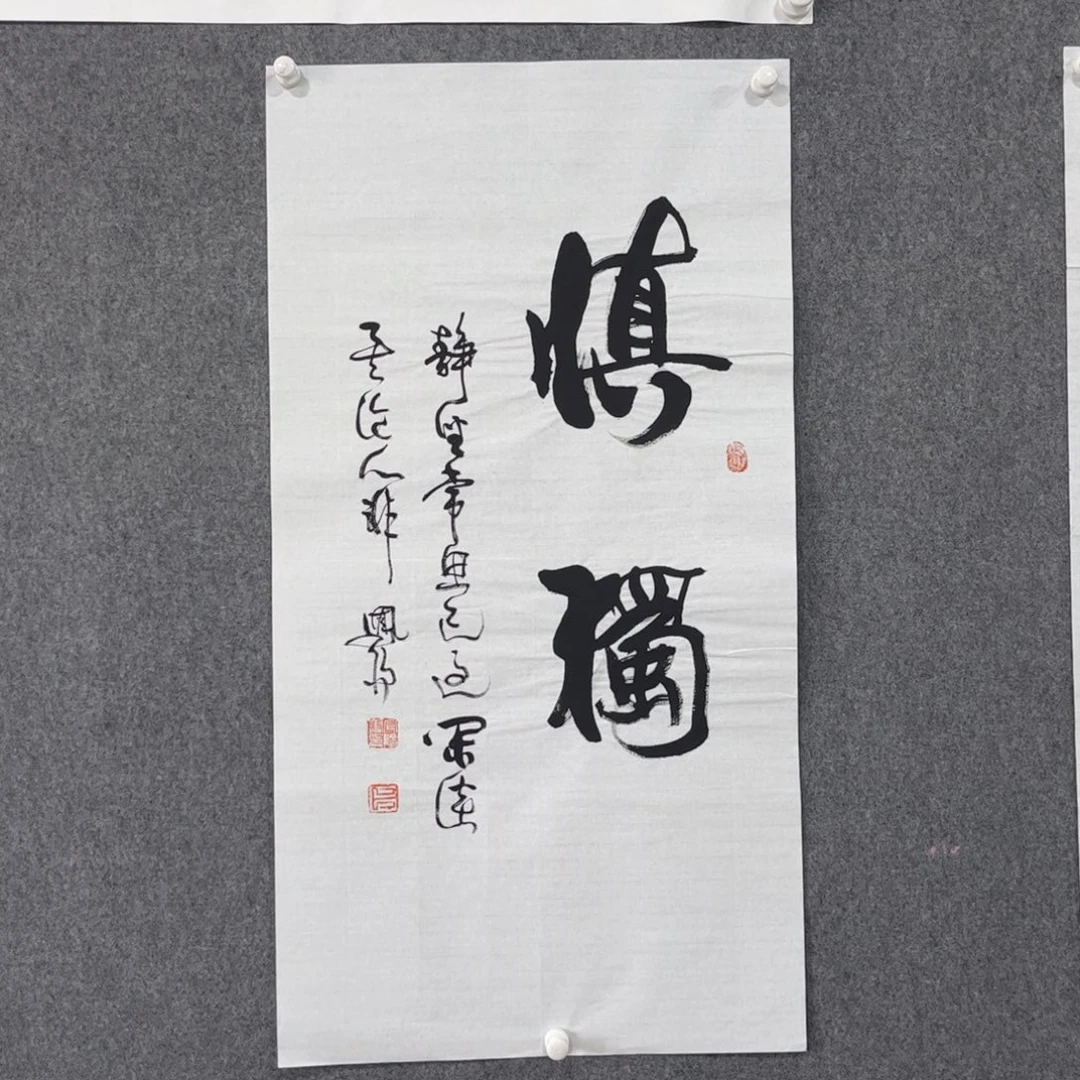 慎獨
靜坐常思己過閑談
莫論人非